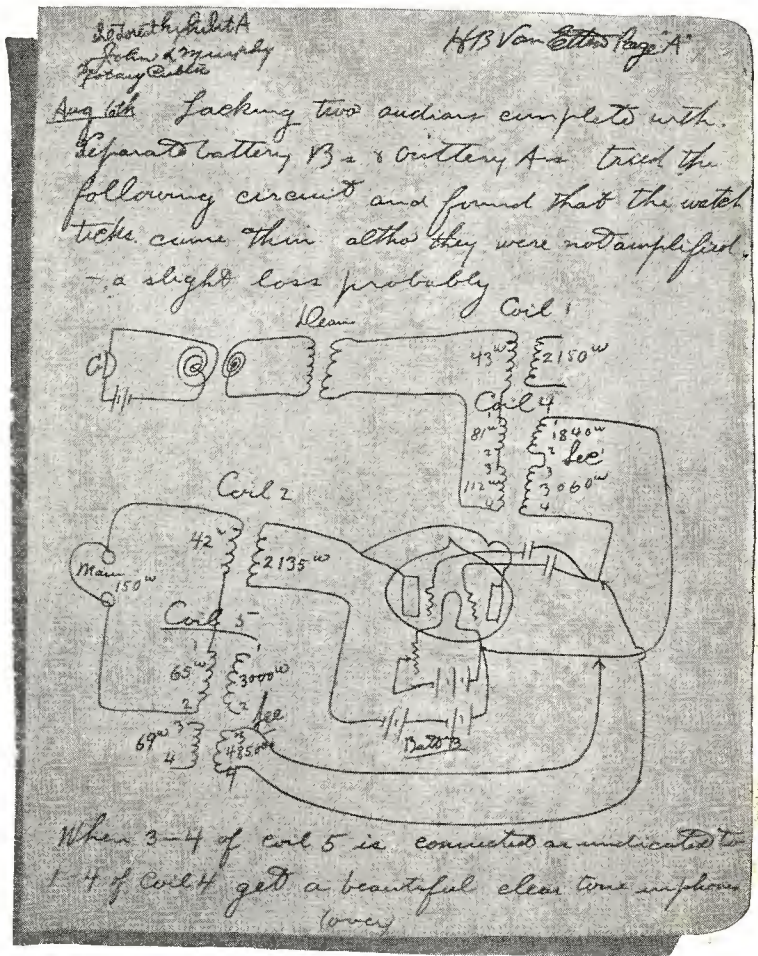 John L Murphy
Notary Public
HB Van Etten Page "A"
Aug 6th Lacking two audions complete with
Separate battery Bs & battery As tried the
following circuit and found that the watch
ticks came thru altho they were not amplified.
- a slight loss probably
Coil 1
43ω
2150ω
Coil 4
81ω
1
1840ω
2
2
Lee
3
3
112ω
3060ω
4
4
Coil 2
42ω
2135ω
Main
150ω
Coil 5
1
1
65ω
3000ω
2
2
Lee
69ω
3
3
4
4
Bat B
When 3-4 of coil 5 is connected as indicated to
1-4 of coil 4 get a beautiful clear tone in phones
(over)